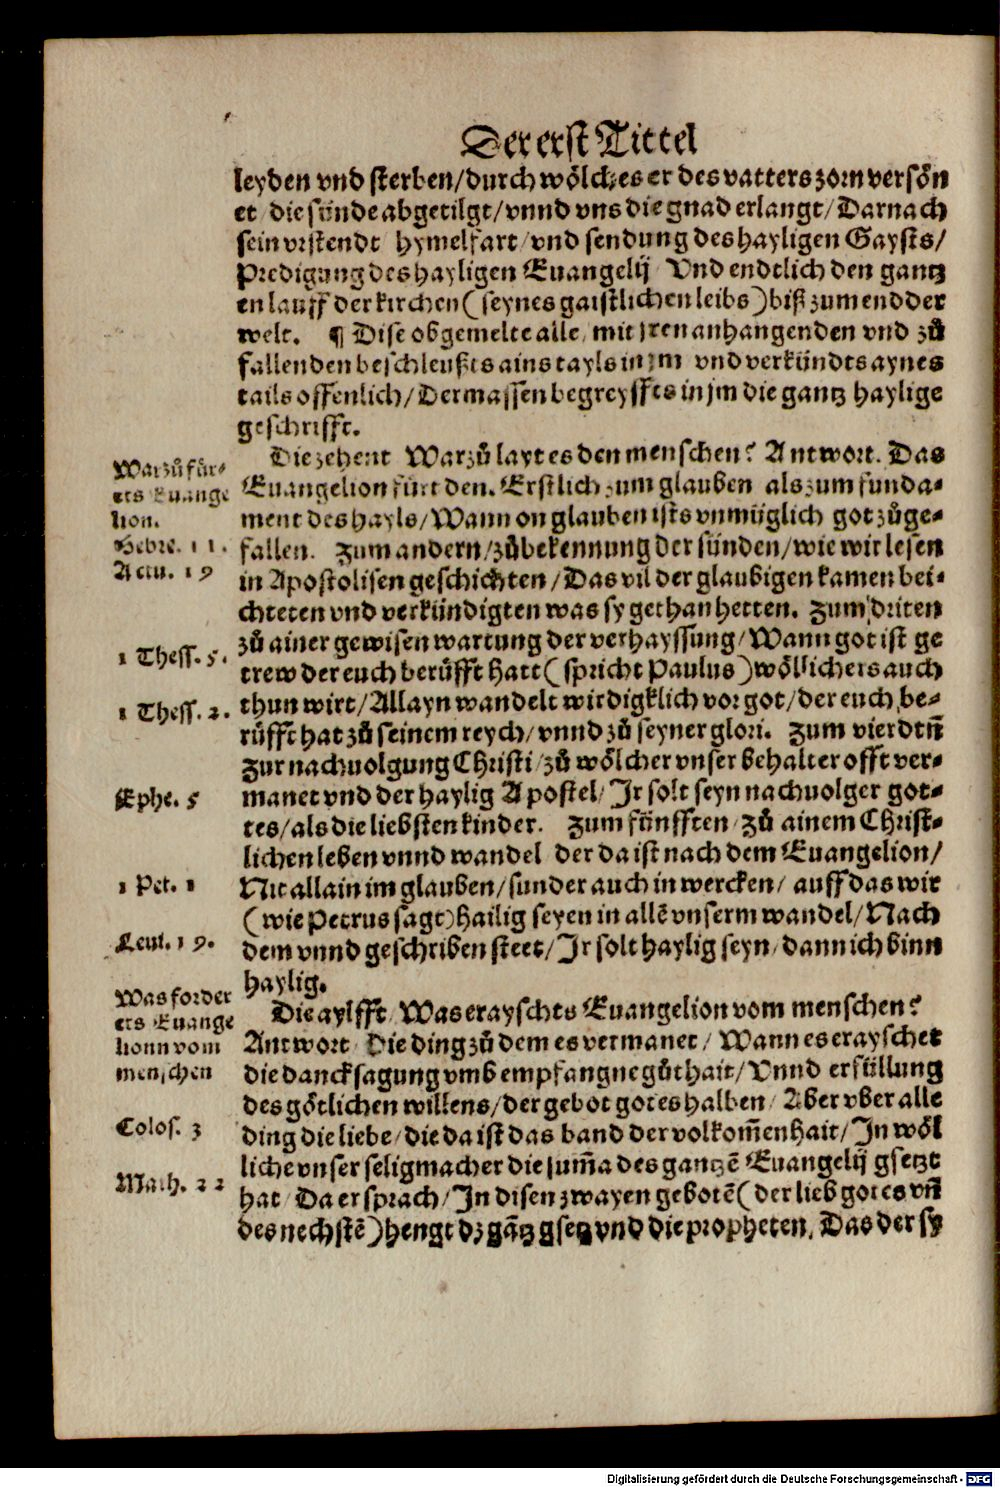 Der erst Tittel
leyden vnd sterben/durch wölches er des vatters zorn versön
et/die sünde abgetilgt/vnnd vns die gnad erlangt/Darnach
sein vrstendt/hymelfart/vnd sendung des hayligen Gaysts/
Predigung des hayligen Euangelij/Vnd endtlich den gantz
en lauff der kirchen(seynes gaistlichen leibs)biß zum end der
welt. ¶ Dise obgemelte alle/mit jren anhangenden vnd zů
fallenden beschleußts ains tayls in jm vnd verkündts aynes
tails offenlich/Dermassen begreyffts in jm die gantz haylige
geschrifft.
Die zehent Warzů layt es den menschen? Antwort. Das
Euangelion fürt den. Erstlich zum glauben als zum funda-
ment des hayls/Wann on glauben ists vnmüglich got zůge-
fallen. Zum andern/zůbekennung der sünden/wie wir lesen
in Apostolisen geschichten/Das vil der glaubigen kamen bei-
chteten vnd verkündigten was sy gethan hetten. Zum driten
zů ainer gewisen wartung der verhayssung/Wann got ist ge
trew der euch berüfft hatt(spricht Paulus)wöllichers auch
thun wirt/Allayn wandelt wirdigklich vor got/der euch be-
rüfft hat zů seinem reych/vnnd zů seyner glori. Zum vierdtn̄
zur nachuolgung Christi/zů wölcher vnser behalter offt ver-
manet vnd der haylig Apostel/Jr solt seyn nachuolger got-
tes/als die liebsten kinder. Zum fünfften/zů ainem Christ-
lichen leben vnnd wandel der da ist nach dem Euangelion/
Nit allain im glauben/sunder auch in wercken/auff das wir
(wie Petrus sagt)hailig seyen in allē vnserm wandel/Nach
dem vnnd geschriben steet/Jr solt haylig seyn/dann ich binn
haylig.
Die aylfft/Was erayschts Euangelion vom menschen?
Antwort/Die ding zů dem es vermanet/Wann es erayschet
die dancksagung vmb empfangne gůthait/Vnnd erfüllung
des götlichen willens/der gebot gotes halben/Aber vber alle
ding die liebe/die da ist das band der volkom̄enhait/Jn wöl
liche vnser seligmacher die sum̄a des gantzē Euangelij gsetzt
hat/Da er sprach/Jn disen zwayen gebotē(der lieb gotes vn̄
des nechstē)hengt dz gātz gsetz vnd die propheten. Das der sy
Warzů für-
ets Euange
lion.
Hebre. 11.
Actu. 19
1 Thess. 5.
1 Thess. 2.
Ephe. 5
1 Pet. 1
Leui. 19.
Was forder
ets Euange
lionn vom
menschen
Colos. 3
Math. 22
Digitalisierung gefördert durch die Deutsche Forschungsgemeinschaft - DFG